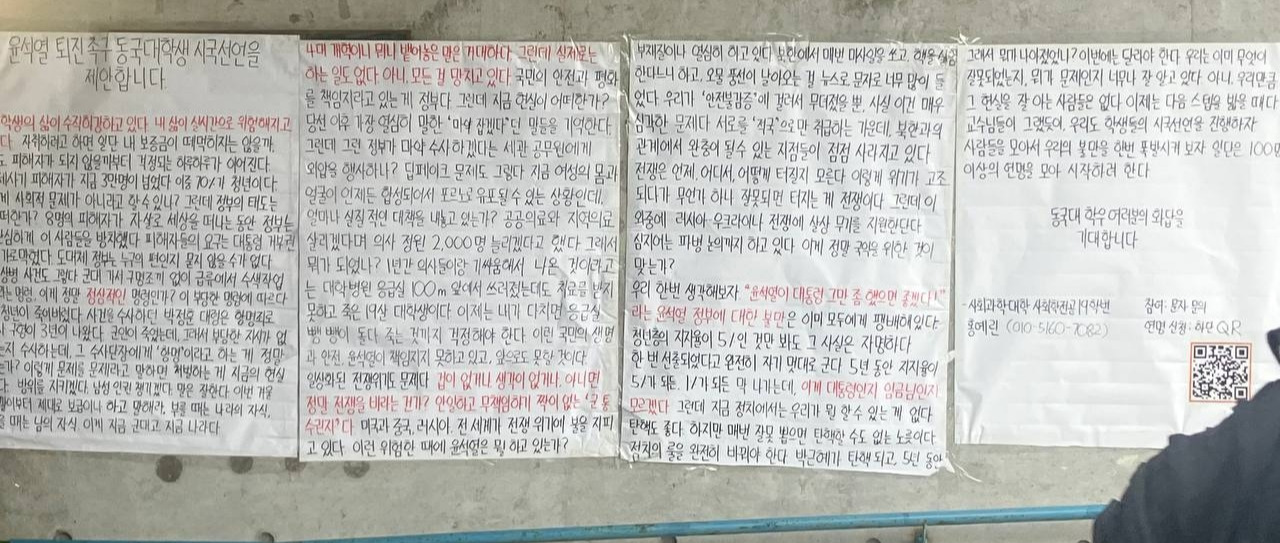 윤석열 퇴진 촉구 동국대학생 시국선언을
제안합니다
학생의 삶이 수직하강하고 있다 내 삶이 실시간으로 위협해지고
다 자취하려고 하면 일단 내 보증금이 떼먹히지는 않을까
도 피해자가 되지 않을까부터 걱정되는 하루하루가 이어진다
세사기 피해자가 지금 3만명이 넘었다 이중 70%가 청년이다
게 사회적 문제가 아니라고 할 수 있나? 그런데 정부의 태도는
떠한가? 8명의 피해자가 자살로 세상을 떠나는 동안 정부는
심하게 이 사람들을 방치했다 피해자들의 요구는 대통령 거부권
가로막혔다 도대체 정부는 누구의 편인지 묻지 않을 수가 없다
병 사건도 그렇다 군대 가서 구명조끼 없이 급류에서 수색작업
는 명령, 이게 정말 정상적인 명령인가? 이 부당한 명령에 따르다
청년이 죽어버렸다 사건을 수사하던 박정훈 대령은 항명죄로
구형이 3년이 나왔다 군인이 죽었는데, 그래서 부당한 지시가 없
는지 수사하는데, 그 수사단장에게 '항명'이라고 하는 게 정말
가? 이렇게 문제를 문제라고 말하면 처벌하는 게 지금의 현실
다 병위를 지키겠다, 남성 인권 챙기겠다 말은 잘한다 이번 겨울
이부터 제대로 보급이나 하고 말해라, 부를 때는 나라의 자식,
을 때는 남의 자식 이게 지금 군대고, 지금 나라다
4대 개혁이니 뭐니 뱉어놓은 말은 거대하다 그런데 실제로는
하는 일도 없다 아니, 모든 걸 망치고 있다 국민의 안전과 평화
를 책임지라고 있는 게 정부다 그런데 지금 현실이 어떠한가?
당선 이후 가장 열심히 말한 '마약 잡겠다'던 말들을 기억한다
그런데 그런 정부가 마약 수사하겠다는 세관 공무원에게
외압을 행사하나? 딥페이크 문제도 그렇다 지금 여성의 몸과
얼굴이 언제든 합성되어서 포르노로 유포될 수 있는 상황인데,
얼마나 실질적인 대책을 내놓고 있는가? 공공의료와 지역의료
살리겠다며 의사 정원 2,000명 늘리겠다고 했다 그래서
뭐가 되었나? 1년간 의사들이랑 기싸움해서 나온 것이라고
는 대학병원 응급실 100m 앞에서 쓰러졌는데도 치료를 받지
못하고 죽은 19살 대학생이다 이제는 내가 다치면 응급실
뺑뺑이 돌다 죽는 것까지 걱정해야 한다 이런 국민의 생명
과 안전, 윤석열이 책임지지 못하고 있고, 앞으로도 못할 것이다
일상화된 전쟁위기도 문제다 겁이 없거나 생각이 없거나, 아니면
정말 전쟁을 바라는 건가? 안일하고 무책임하기 짝이 없는 '군 통
수권자'다 미국과 중국, 러시아, 전 세계가 전쟁 위기에 불을 지피
고 있다 이런 위험한 때에 윤석열은 뭘 하고 있는가?
부채질이나 열심히 하고 있다 북한에서 매번 미사일을 쏘고, 핵을 실험
한다느니 하고, 오물 풍선이 날아오는 걸 뉴스로 문자로 너무 많이 들
었다 우리가 '안전불감증'에 걸려서 무뎌졌을 뿐, 사실 이건 매우
심각한 문제다 서로를 '적국'으로만 취급하는 가운데, 북한과의
관계에서 완충이 될 수 있는 지점들이 점점 사라지고 있다
전쟁은 언제, 어디서, 어떻게 터질지 모른다 이렇게 위기가 고조
되다가 무언가 하나 잘못되면 터지는 게 전쟁이다 그런데 이
와중에 러시아 우크라이나 전쟁에 살상 무기를 지원한단다
심지어는 파병 논의까지 하고 있다 이게 정말 국익을 위한 것이
맞는가?
우리 한번 생각해보자 "윤석열이 대통령 그만 좀 했으면 좋겠다!"
라는 윤석열 정부에 대한 불만은 이미 모두에게 팽배해있다
청년층의 지지율이 5%인 것만 봐도 그 사실은 자명하다
한 번 선출되었다고 완전히 자기 멋대로 군다 5년 동안 지지율이
5%가 되든, 1%가 되든 막 나가는데, 이게 대통령인지 임금님인지
모르겠다 그런데 지금 정치에서는 우리가 뭘 할 수 있는 게 없다
탄핵도 좋다 하지만 매번 잘못 뽑으면 탄핵할 수도 없는 노릇이다
정치의 룰을 완전히 바꿔야 한다 박근혜가 탄핵 되고, 5년 동안
그래서 뭐가 나아졌었나? 이번에는 달라야 한다 우리는 이미 무엇이
잘못되었는지, 뭐가 문제인지 너무나 잘 알고 있다 아니, 우리만큼
그 현실을 잘 아는 사람들은 없다 이제는 다음 스텝을 밟을 때다
교수님들이 그랬듯이, 우리도 학생들의 시국선언을 진행하자
사람들을 모아서 우리의 불만을 한번 폭발시켜 보자 일단은 100명
이상의 연명을 모아 시작하려 한다
동국대 학우 여러분의 화답을
기대합니다
- 사회과학대학 사회학전공 19학번
홍예린 (010-5160-7082)
참여: 문자 문의
연명 신청: 하단 QR